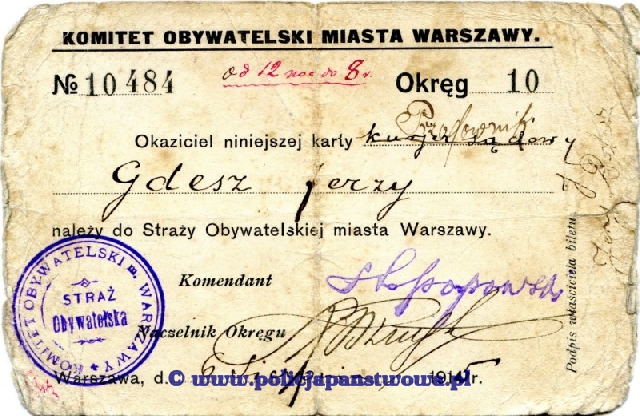 KOMITET OBYWATELSKI MIASTA WARSZAWY.
№ 10484 od 12 noc do 8 r. Okręg 10
Przodownik
Okaziciel niniejszej karty kurjer sądowy
Gdesz Jerzy
należy do Straży Obywatelskiej miasta Warszawy.
Komendant
Naczelnik Okręgu
Warszawa, d. 191 r.
Podpis właściciela biletu
KOMITET OBYWATELSKI m. WARSZAWY
STRAŻ
Obywatelska
© www.policjapanstwowa.pl